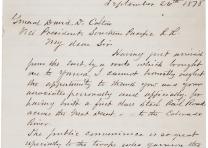 September 26th 1878
General David D. Colton
Vice President Southern Pacific R.R.
My dear Sir
Having just arrived
from the East, by a route which brought
me to Yuma, I cannot
the opportunity to thank you and your
associates personally and officially for
having built a first class Rail Road
across the Great desert to the Colorado
River.
The public convenience is so great
specially to the troops who